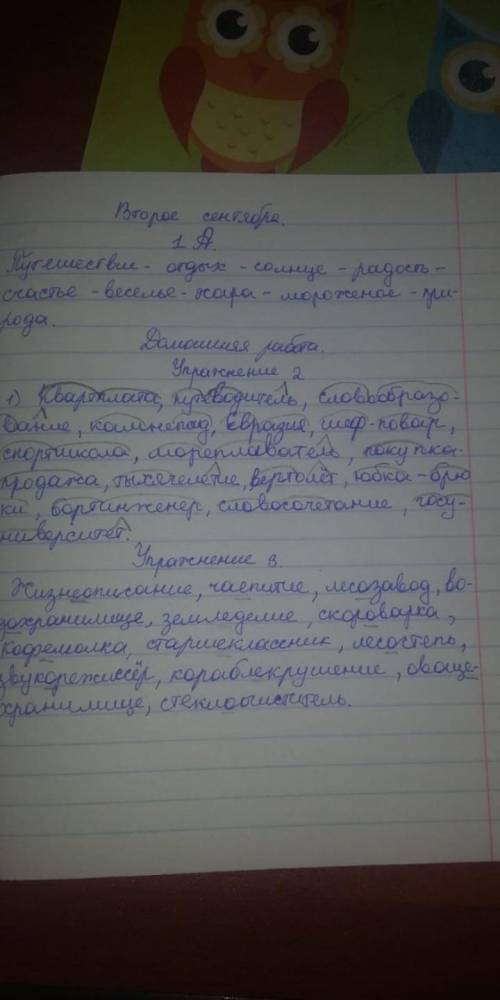 Второе сентября.
1 А.
Путешествие - отдых - солнце - радость -
счастье - веселье - жара - мороженое - при-
рода.
Домошняя работа.
Упражнение 2
1) Квартплата, путеводитель, словообразо-
вание, камнепад, Евразия, шеф-повар,
спортшкола, мореплаватель, покупка-
продажа, тысячелетие, вертолёт, юбка-брю
ки, бортинженер, словосочетание, госу-
ниверситет.
Упражнение 3.
Жизнеописание, чаепитие, лесозавод, во-
дохранилище, земледелие, скороварка,
кофемолка, старшеклассник, лесостепь,
звукорежиссёр, кораблекрушение, овоще-
хранилище, стеклоочиститель.